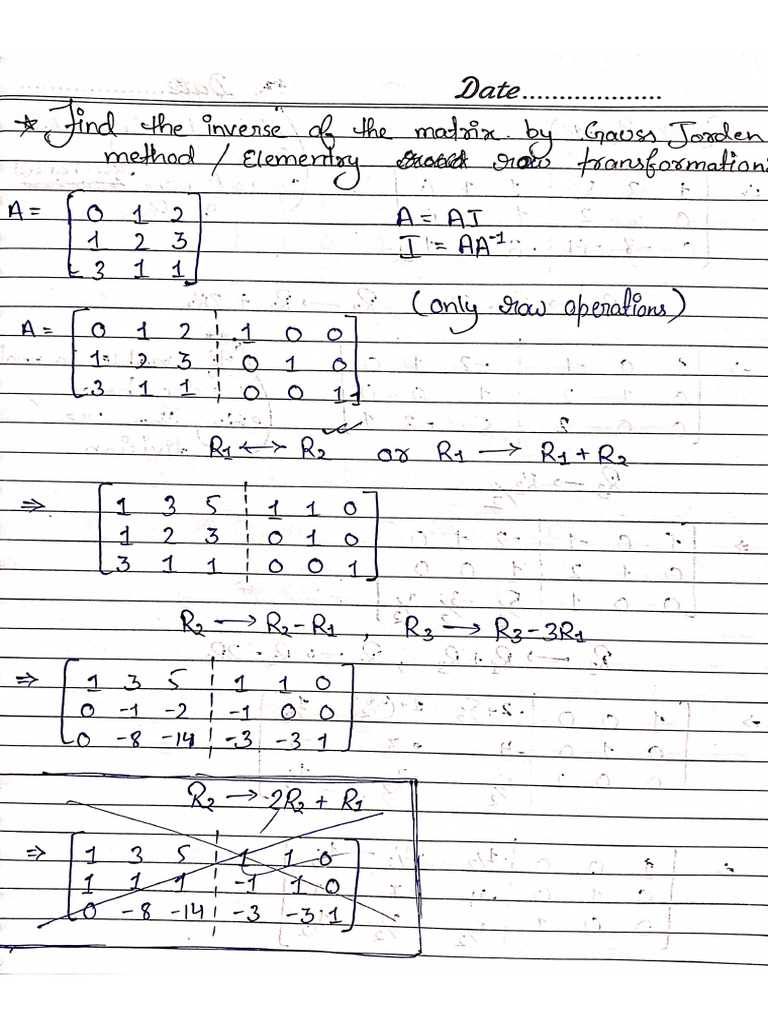 Date...................
* Find the inverse of the matrix by Gauss Jorden
method / Elementry row transformation:
A = [ 0 1 2 A = AI
1 2 3 I = AA⁻¹
3 1 1 ]
(only row operations)
A = [ 0 1 2 ¦ 1 0 0
1 2 3 ¦ 0 1 0
3 1 1 ¦ 0 0 1 ]
R1 ↔ R2 ✓ or R1 → R1 + R2
⇒ [ 1 3 5 ¦ 1 1 0
1 2 3 ¦ 0 1 0
3 1 1 ¦ 0 0 1 ]
R2 → R2 - R1 , R3 → R3 - 3R1
⇒ [ 1 3 5 ¦ 1 1 0
0 -1 -2 ¦ -1 0 0
0 -8 -14 ¦ -3 -3 1 ]
R2 → 2R2 + R1
⇒ [ 1 3 5 ¦ 1 1 0
1 1 1 ¦ -1 1 0
0 -8 -14 ¦ -3 -3 1 ]